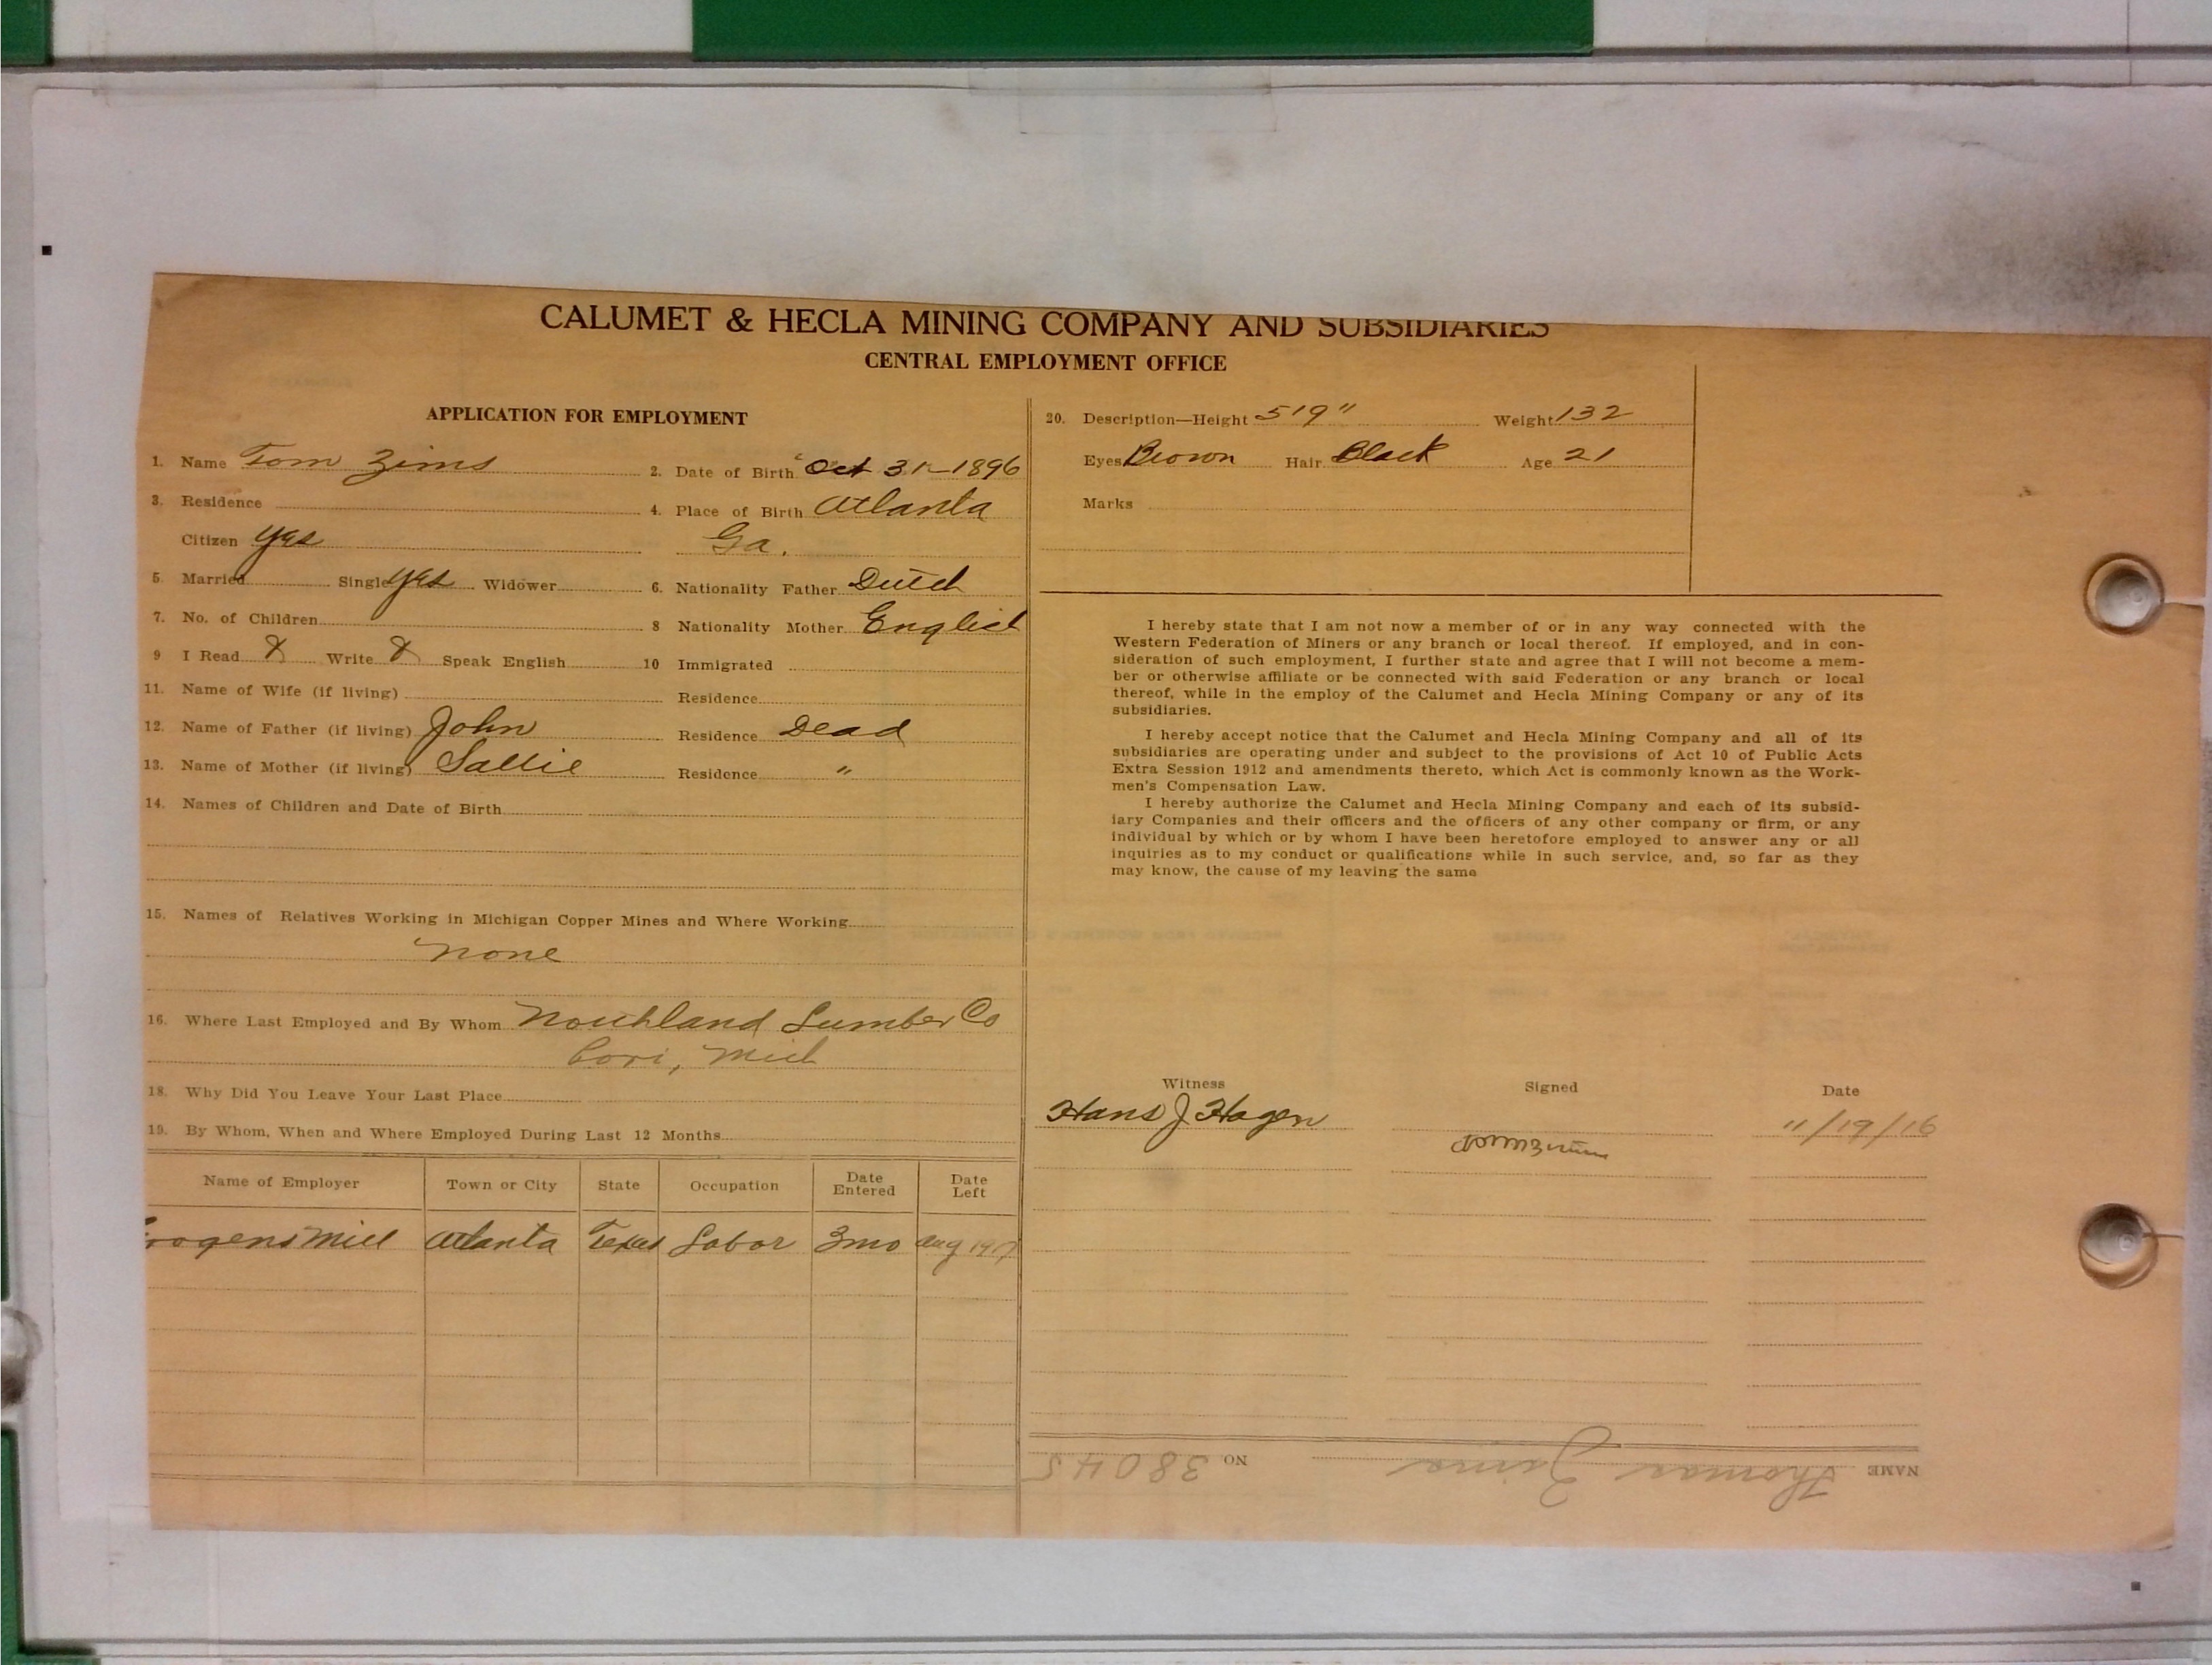 CALUMET & HECLA MINING COMPANY AND SUBSIDIARIES
CENTRAL EMPLOYMENT OFFICE
APPLICATION FOR EMPLOYMENT
1. Name Tom Zims 2. Date of Birth Oct 31-1896
3. Residence 4. Place of Birth Atlanta
Citizen yes Ga.
5. Married Single yes Widower 6. Nationality Father Dutch
7. No. of Children 8 Nationality Mother English
9 I Read X Write X Speak English 10 Immigrated
11. Name of Wife (if living) Residence
12. Name of Father (if living) John Residence Dead
13. Name of Mother (if living) Sallie Residence "
14. Names of Children and Date of Birth
15. Names of Relatives Working in Michigan Copper Mines and Where Working
none
16. Where Last Employed and By Whom Northland Lumber Co
Mich
18. Why Did You Leave Your Last Place
19. By Whom, When and Where Employed During Last 12 Months
Name of Employer Town or City State Occupation Date Entered Date Left
Mill Atlanta Texas Labor 3mo Aug
20. Description—Height 5'9" Weight 132
Eyes Brown Hair Black Age 21
Marks
I hereby state that I am not now a member of or in any way connected with the
Western Federation of Miners or any branch or local thereof. If employed, and in con-
sideration of such employment, I further state and agree that I will not become a mem-
ber or otherwise affiliate or be connected with said Federation or any branch or local
thereof, while in the employ of the Calumet and Hecla Mining Company or any of its
subsidiaries.
I hereby accept notice that the Calumet and Hecla Mining Company and all of its
subsidiaries are operating under and subject to the provisions of Act 10 of Public Acts
Extra Session 1912 and amendments thereto, which Act is commonly known as the Work-
men's Compensation Law.
I hereby authorize the Calumet and Hecla Mining Company and each of its subsid-
iary Companies and their officers and the officers of any other company or firm, or any
individual by which or by whom I have been heretofore employed to answer any or all
inquiries as to my conduct or qualifications while in such service, and, so far as they
may know, the cause of my leaving the same
Witness Signed Date
Hans J Hagen 11/19/16
NAME Thomas Zims NO 38045